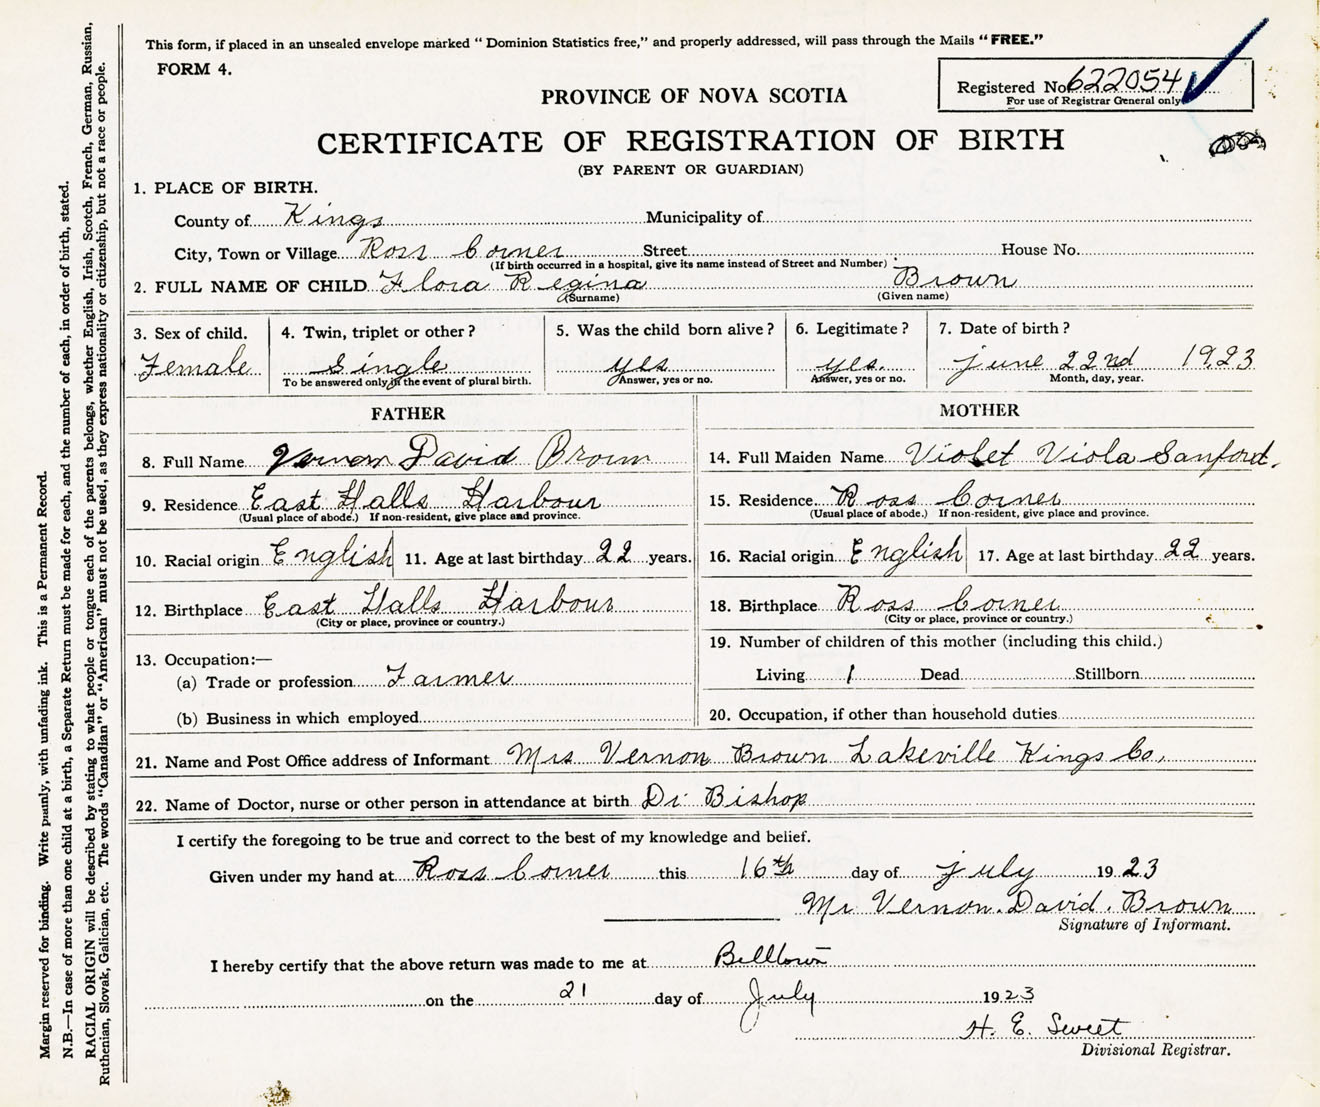 This form, if placed in an unsealed envelope marked " Dominion Statistics free," and properly addressed, will pass through the Mails " FREE."
FORM 4.
Registered No. 622054
For use of Registrar General only
PROVINCE OF NOVA SCOTIA
CERTIFICATE OF REGISTRATION OF BIRTH
(BY PARENT OR GUARDIAN)
1. PLACE OF BIRTH.
County of Kings Municipality of
City, Town or Village Ross Corner Street House No.
(If birth occurred in a hospital, give its name instead of Street and Number)
2. FULL NAME OF CHILD Flora Regina Brown
(Surname) (Given name)
3. Sex of child. 4. Twin, triplet or other ? 5. Was the child born alive ? 6. Legitimate ? 7. Date of birth ?
Female Single yes yes. June 22nd 1923
To be answered only in the event of plural birth. Answer, yes or no. Answer, yes or no. Month, day, year.
FATHER MOTHER
8. Full Name Vernon David Brown 14. Full Maiden Name Violet Viola Sanford.
9. Residence East Halls Harbour 15. Residence Ross Corner
(Usual place of abode.) If non-resident, give place and province. (Usual place of abode.) If non-resident, give place and province.
10. Racial origin English 11. Age at last birthday 22 years. 16. Racial origin English 17. Age at last birthday 22 years.
12. Birthplace East Halls Harbour 18. Birthplace Ross Corner
(City or place, province or country.) (City or place, province or country.)
13. Occupation:— 19. Number of children of this mother (including this child.)
(a) Trade or profession Farmer Living 1 Dead Stillborn
(b) Business in which employed 20. Occupation, if other than household duties
21. Name and Post Office address of Informant Mrs Vernon Brown Lakeville Kings Co.
22. Name of Doctor, nurse or other person in attendance at birth Dr Bishop
I certify the foregoing to be true and correct to the best of my knowledge and belief.
Given under my hand at Ross Corner this 16th day of July 1923
Mr Vernon. David. Brown
Signature of Informant.
I hereby certify that the above return was made to me at Billtown
on the 21 day of July 1923
H. E. Sweet
Divisional Registrar.
Margin reserved for binding. Write plainly, with unfading ink. This is a Permanent Record.
N.B.—In case of more than one child at a birth, a Separate Return must be made for each, and the number of each, in order of birth, stated.
RACIAL ORIGIN will be described by stating to what people or tongue each of the parents belongs, whether English, Irish, Scotch, French, German, Russian,
Ruthenian, Slovak, Galician, etc. The words "Canadian" or "American" must not be used, as they express nationality or citizenship, but not a race or people.